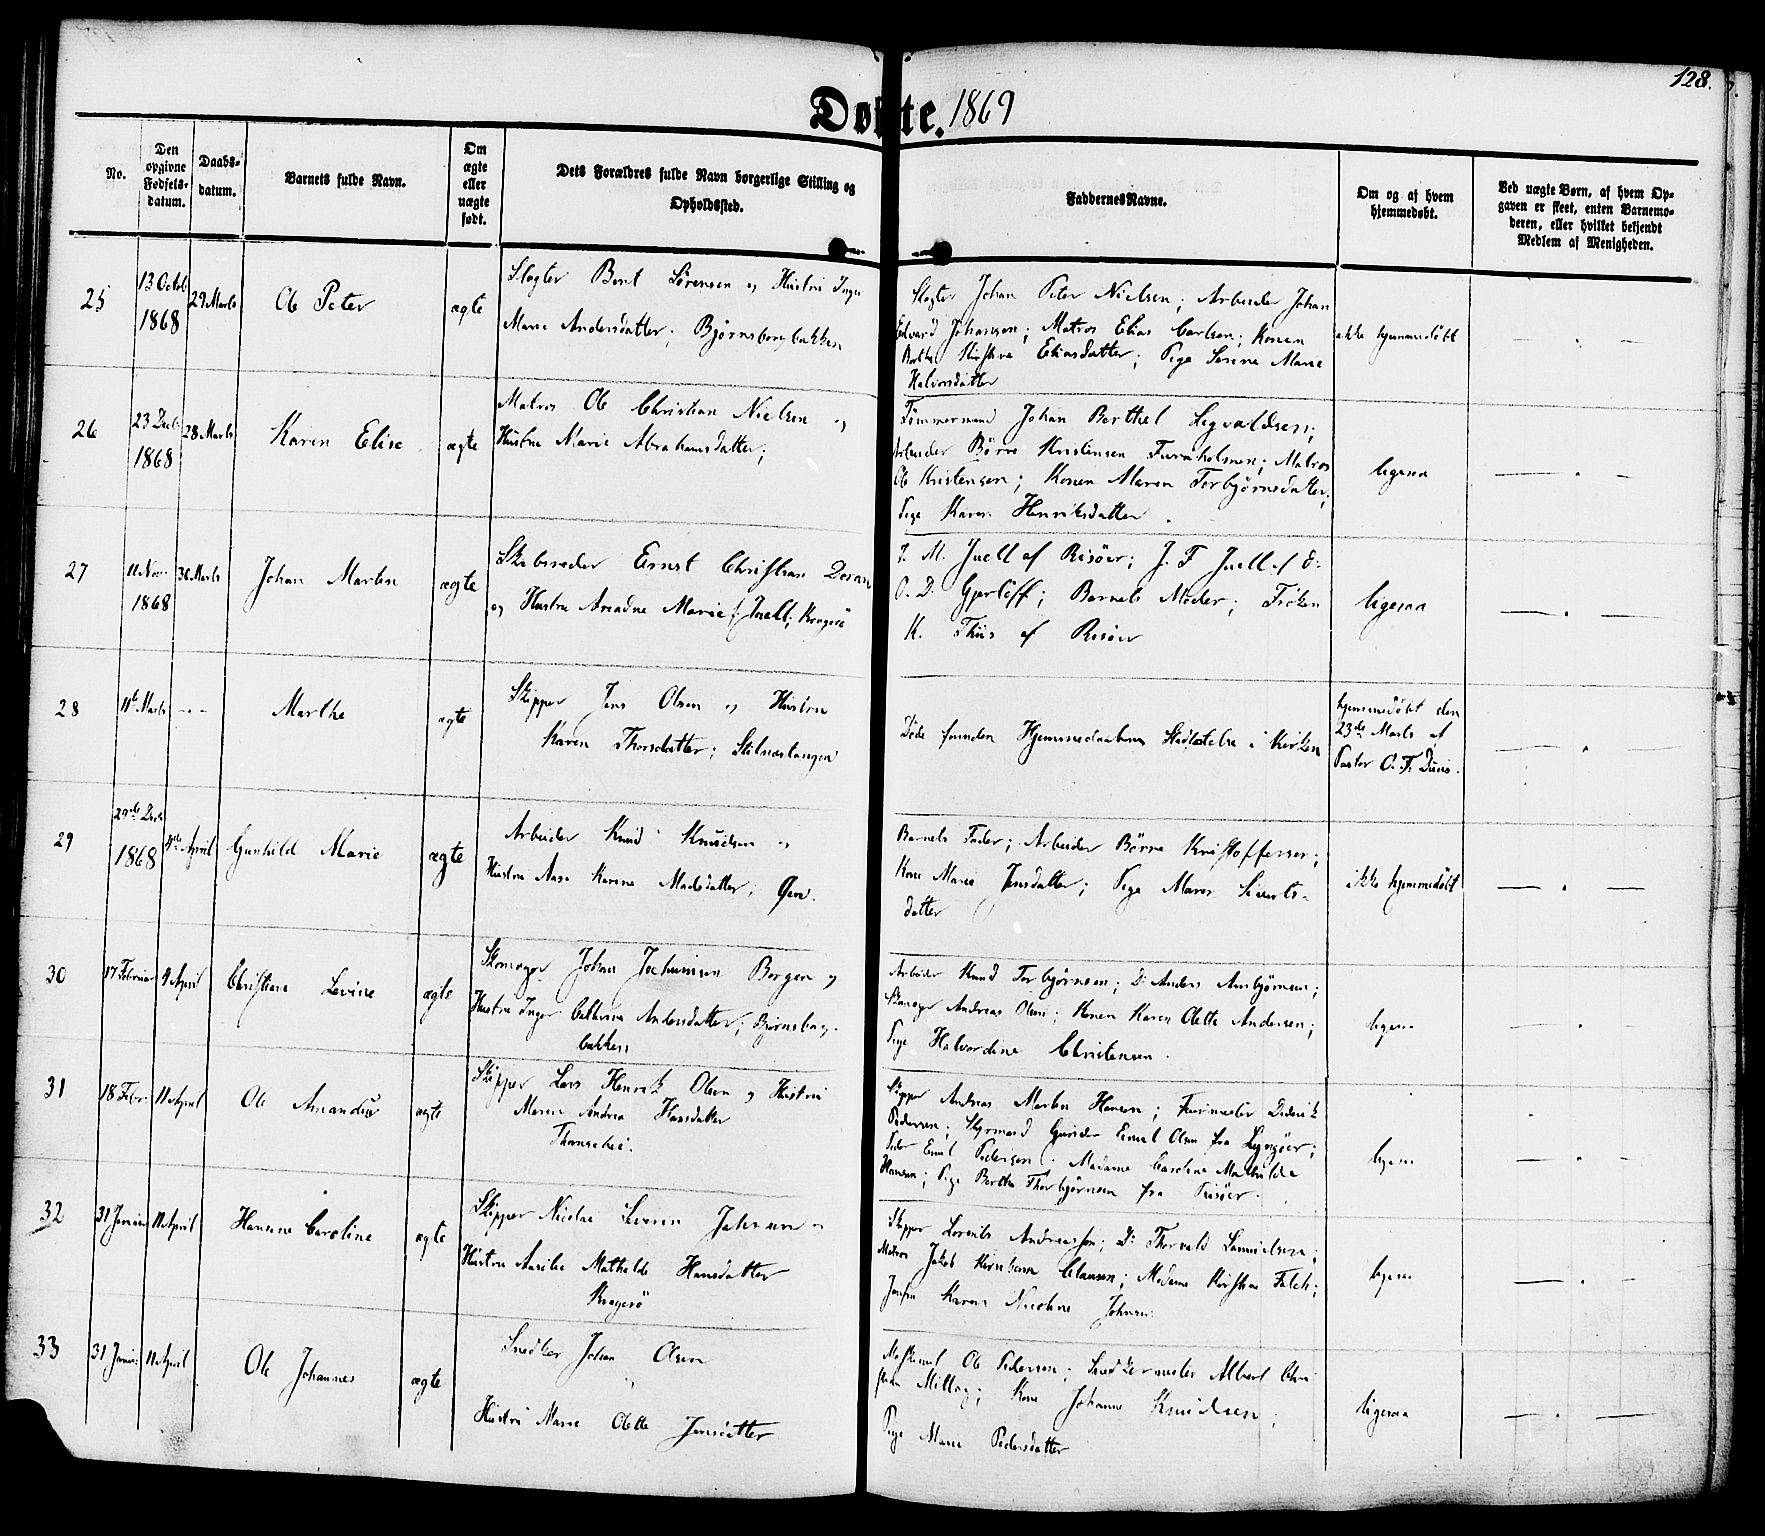 128.
Døbte. 1869
No.
Den opgivne Fødsels-datum.
Daabs-datum.
Barnets fulde Navn.
Om ægte eller uægte født.
Dets Forældres fulde Navn borgerlige Stilling og Opholdssted.
Faddernes Navne.
Om og af hvem hjemmedøbt.
Ved uægte Børn, af hvem Opgaven er skeet, enten Barnemoderen, eller hvilket bekjendt Medlem af Menigheden.
25
13 Octob 1868
29 Marts
Ole Peter
ægte
Slagter Bent Sørensen og Hustru Inger
Marie Andersdatter; Bjørnsborgbakken
Slagter Johan Peter Nielsen; Arbeider Johan
Edvard Johansen; Matros Elias Carlsen; Konen
Kirstine Eliasdatter; Pige Serine Marie
Halvorsdatter
ikke hjemmedöbt
26
23 Decb 1868
28 Marts
Karen Elise
ægte
Matros Ole Christian Nielsen og
Hustru Marie Abrahamsdatter;
Tømmermand Johan Berthel Sigvaldsen;
Arbeider Börre Kristensen Furuholmen; Matros
Ole Kristensen; Konen Maren Torbjörnsdatter;
Pige Karen Henriksdatter.
ligesaa
27
11 Nov 1868
30 Marts
Johan Martin
ægte
Skibsreder Ernst Christian
og Hustru Ariadne Marie f. Juell; Kragerö
J. M. Juell af Risöer; J. F. Juell af
O. D. Gjerlöff; Barnets Moder; Fröken
K. Thiis af Risöer
ligesaa
28
11te Marts
- - -
Marthe
ægte
Skipper Jens Olsen og Hustru
Karen Thorsdatter; Stilnestangen
Döde forinden Hjemmedaabens Stadfæstelse i Kirken
hjemmedöbt den
23de Marts af
Pastor O. F.
29
29de Decb 1868
April
Gunhild Marie
ægte
Arbeider Knud Knudsen og
Hustru Aase Karine Madsdatter;
Barnets Fader; Arbeider Börre Kristoffersen;
Kone Maren Jensdatter; Pige Maren Siverts-
datter
ikke hjemmedöbt
30
17 Februar
4 April
Christiane Levine
ægte
Skomager Johan Jochumsen Borgen og
Hustru Inger Cathrine Andersdatter; Bjørnsborg-
bakken
Arbeider Knud Torbjörnsen; Do Anders Ambjörnsen;
Skomager Andreas Olsen; Konen Karen Olette Andersen;
Pige Halvordine Christensen.
ligesaa
31
18 Febr.
11 April
Ole Amandus
ægte
Skipper Lars Henrik Olsen og Hustru
Maren Andrea Hansdatter
Skipper Andreas Martin Hansen; Diderik
Pedersen; Styrmand Emil Olsen fra Lyngöer;
Peder Emil Pedersen; Madame Caroline Mathilde
Hansen; Pige Berthe Thorbjörnsen fra Risöer.
ligesaa
32
31 Januar
11 April
Hansine Caroline
ægte
Skipper Nicolai Severin Johnsen og
Hustru Mathilde Hansdatter
Kragerö
Skipper Lorents Andreassen; Do Thorvald Samuelsen;
Matros Jakob Clausen; Madame Kirstine Falch;
Jomfru Karen Nicoline Johnsen.
ligesaa
33
31 Januar
11 April
Ole Johannes
ægte
Snedker Johan Olsen
Hustru Maren Olette Jensdatter
Ole Pedersen; Snedkermester Albert Chri-
stian Kone Johanne Knudsen;
Pige Maren Pedersdatter
ligesaa